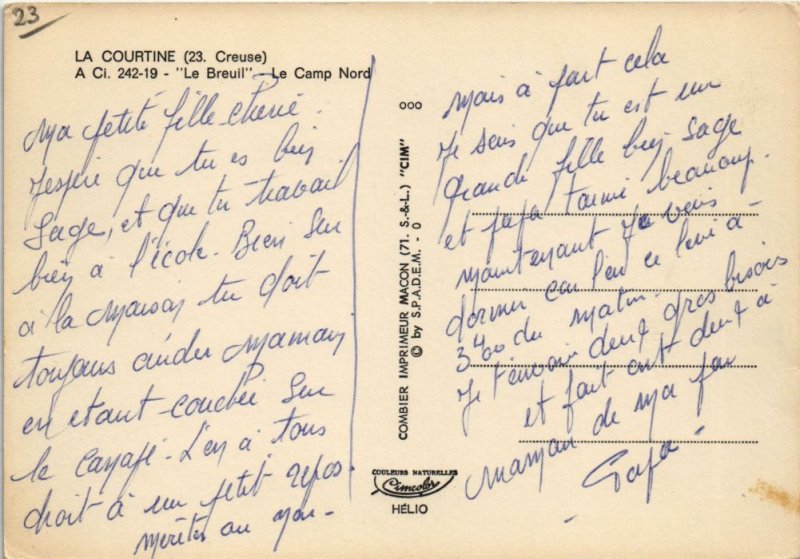 23
LA COURTINE (23. Creuse)
A Ci. 242-19 - "Le Breuil" - Le Camp Nord
Ma petite fille chérie.
J'espère que tu es bien
sage, et que tu travail
bien à l'école. Bien sur
à la maison tu doit
toujours aider Maman
en etant couchée sur
le canapé. L'on à tous
droit à un petit repos
mérités ou non.
mais à part cela
Je sais que tu est une
Grande fille bien sage
et papa t'aime beaucoup.
maintenant Je vais
dormir car l'on ce levé à
3h00 du matin.
Je t'envoie deux gros bisois
et fait ont deux à
maman de ma par
Papa
COMBIER IMPRIMEUR MACON (71. S.-&-L.) "CIM"
© by S.P.A.D.E.M. - 0
COULEURS NATURELLES
Cimcolor
HÉLIO